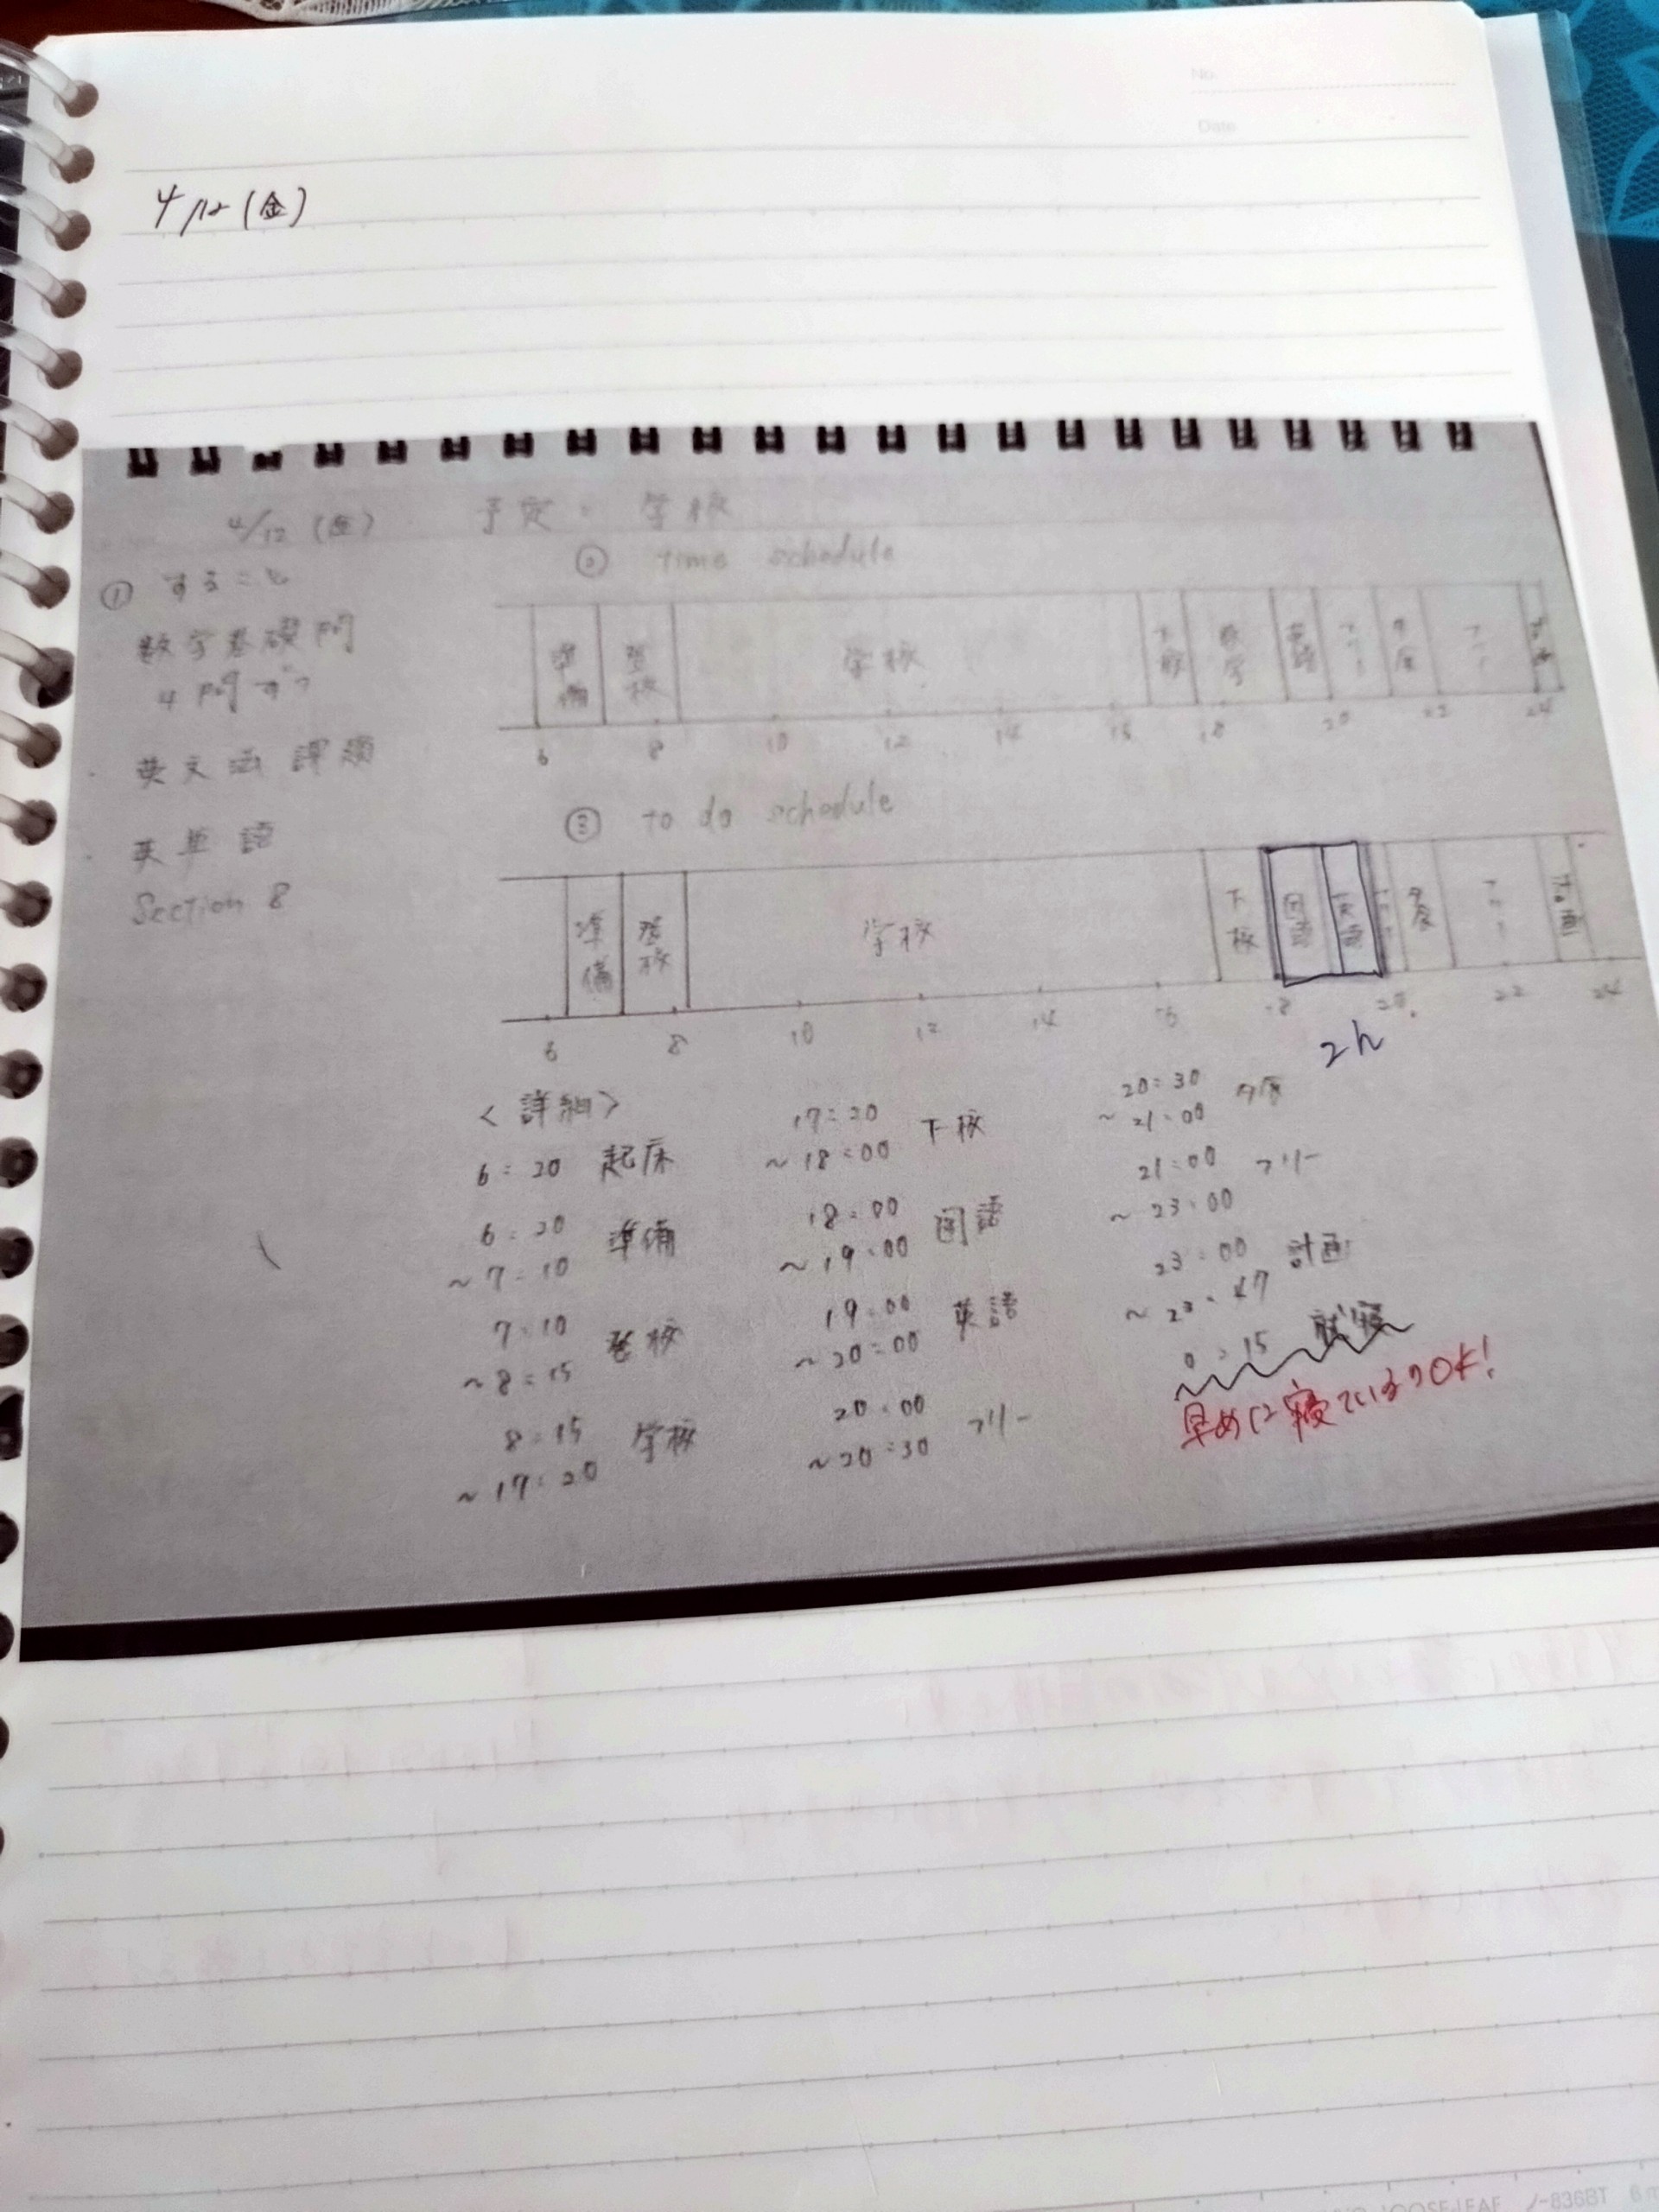 No.
Date
4/12 (金)
4/12 (金) 予定: 学校
① すること
数学基礎問
4問ずつ
英文 課題
英単語
Section 8
② time schedule
準備 登校 学校 下校 数学 英語 フリー 夕食 フリー
6 8 10 12 14 16 18 20 22 24
③ to do schedule
準備 登校 学校 下校 国語 英語 夕食 フリー 計画
6 8 10 12 14 16 18 20 22 24
2h
<詳細>
6:20 起床
6:20
~7:10 準備
7:10
~8:15 登校
8:15
~17:20 学校
17:20
~18:00 下校
18:00
~19:00 国語
19:00
~20:00 英語
20:00
~20:30 フリー
20:30
~21:00 夕食
21:00
~23:00 フリー
23:00
計画
0:15 就寝
早めに寝ているのOK!
LOOSE-LEAF ノ-836BT 6m